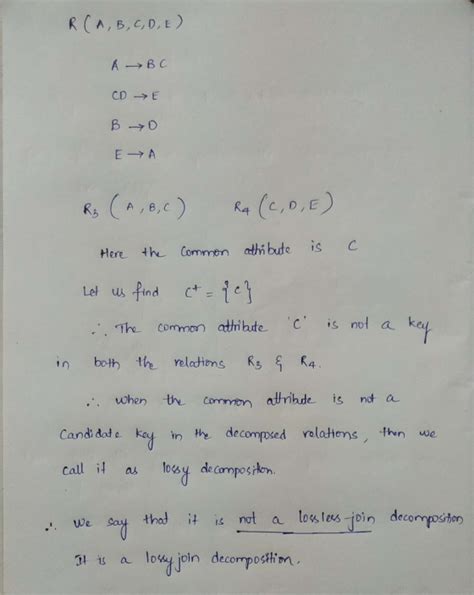 R ( A, B, C, D, E )
A → BC
CD → E
B → D
E → A
R3 ( A, B, C )    R4 ( C, D, E )
Here the common attribute is C
Let us find C+ = {C}
∴ The common attribute 'C' is not a key
in both the relations R3 & R4.
∴ when the common attribute is not a
Candidate key in the decomposed relations, then we
call it as lossy decomposition.
∴ we say that it is not a lossless-join decomposition
It is a lossy join decomposition.